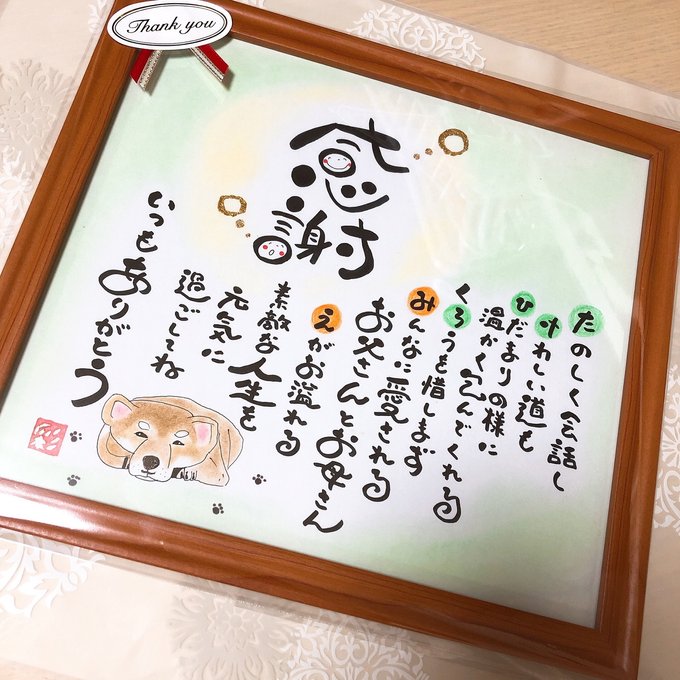 Thank you
感謝
たのしく会話し
けわしい道も
ひだまりの様に
温かく包んでくれる
くろうを惜しまず
みんなに愛される
お父さんとお母さん
えがお溢れる
素敵な人生を
元気に
過ごしてね
いつもありがとう